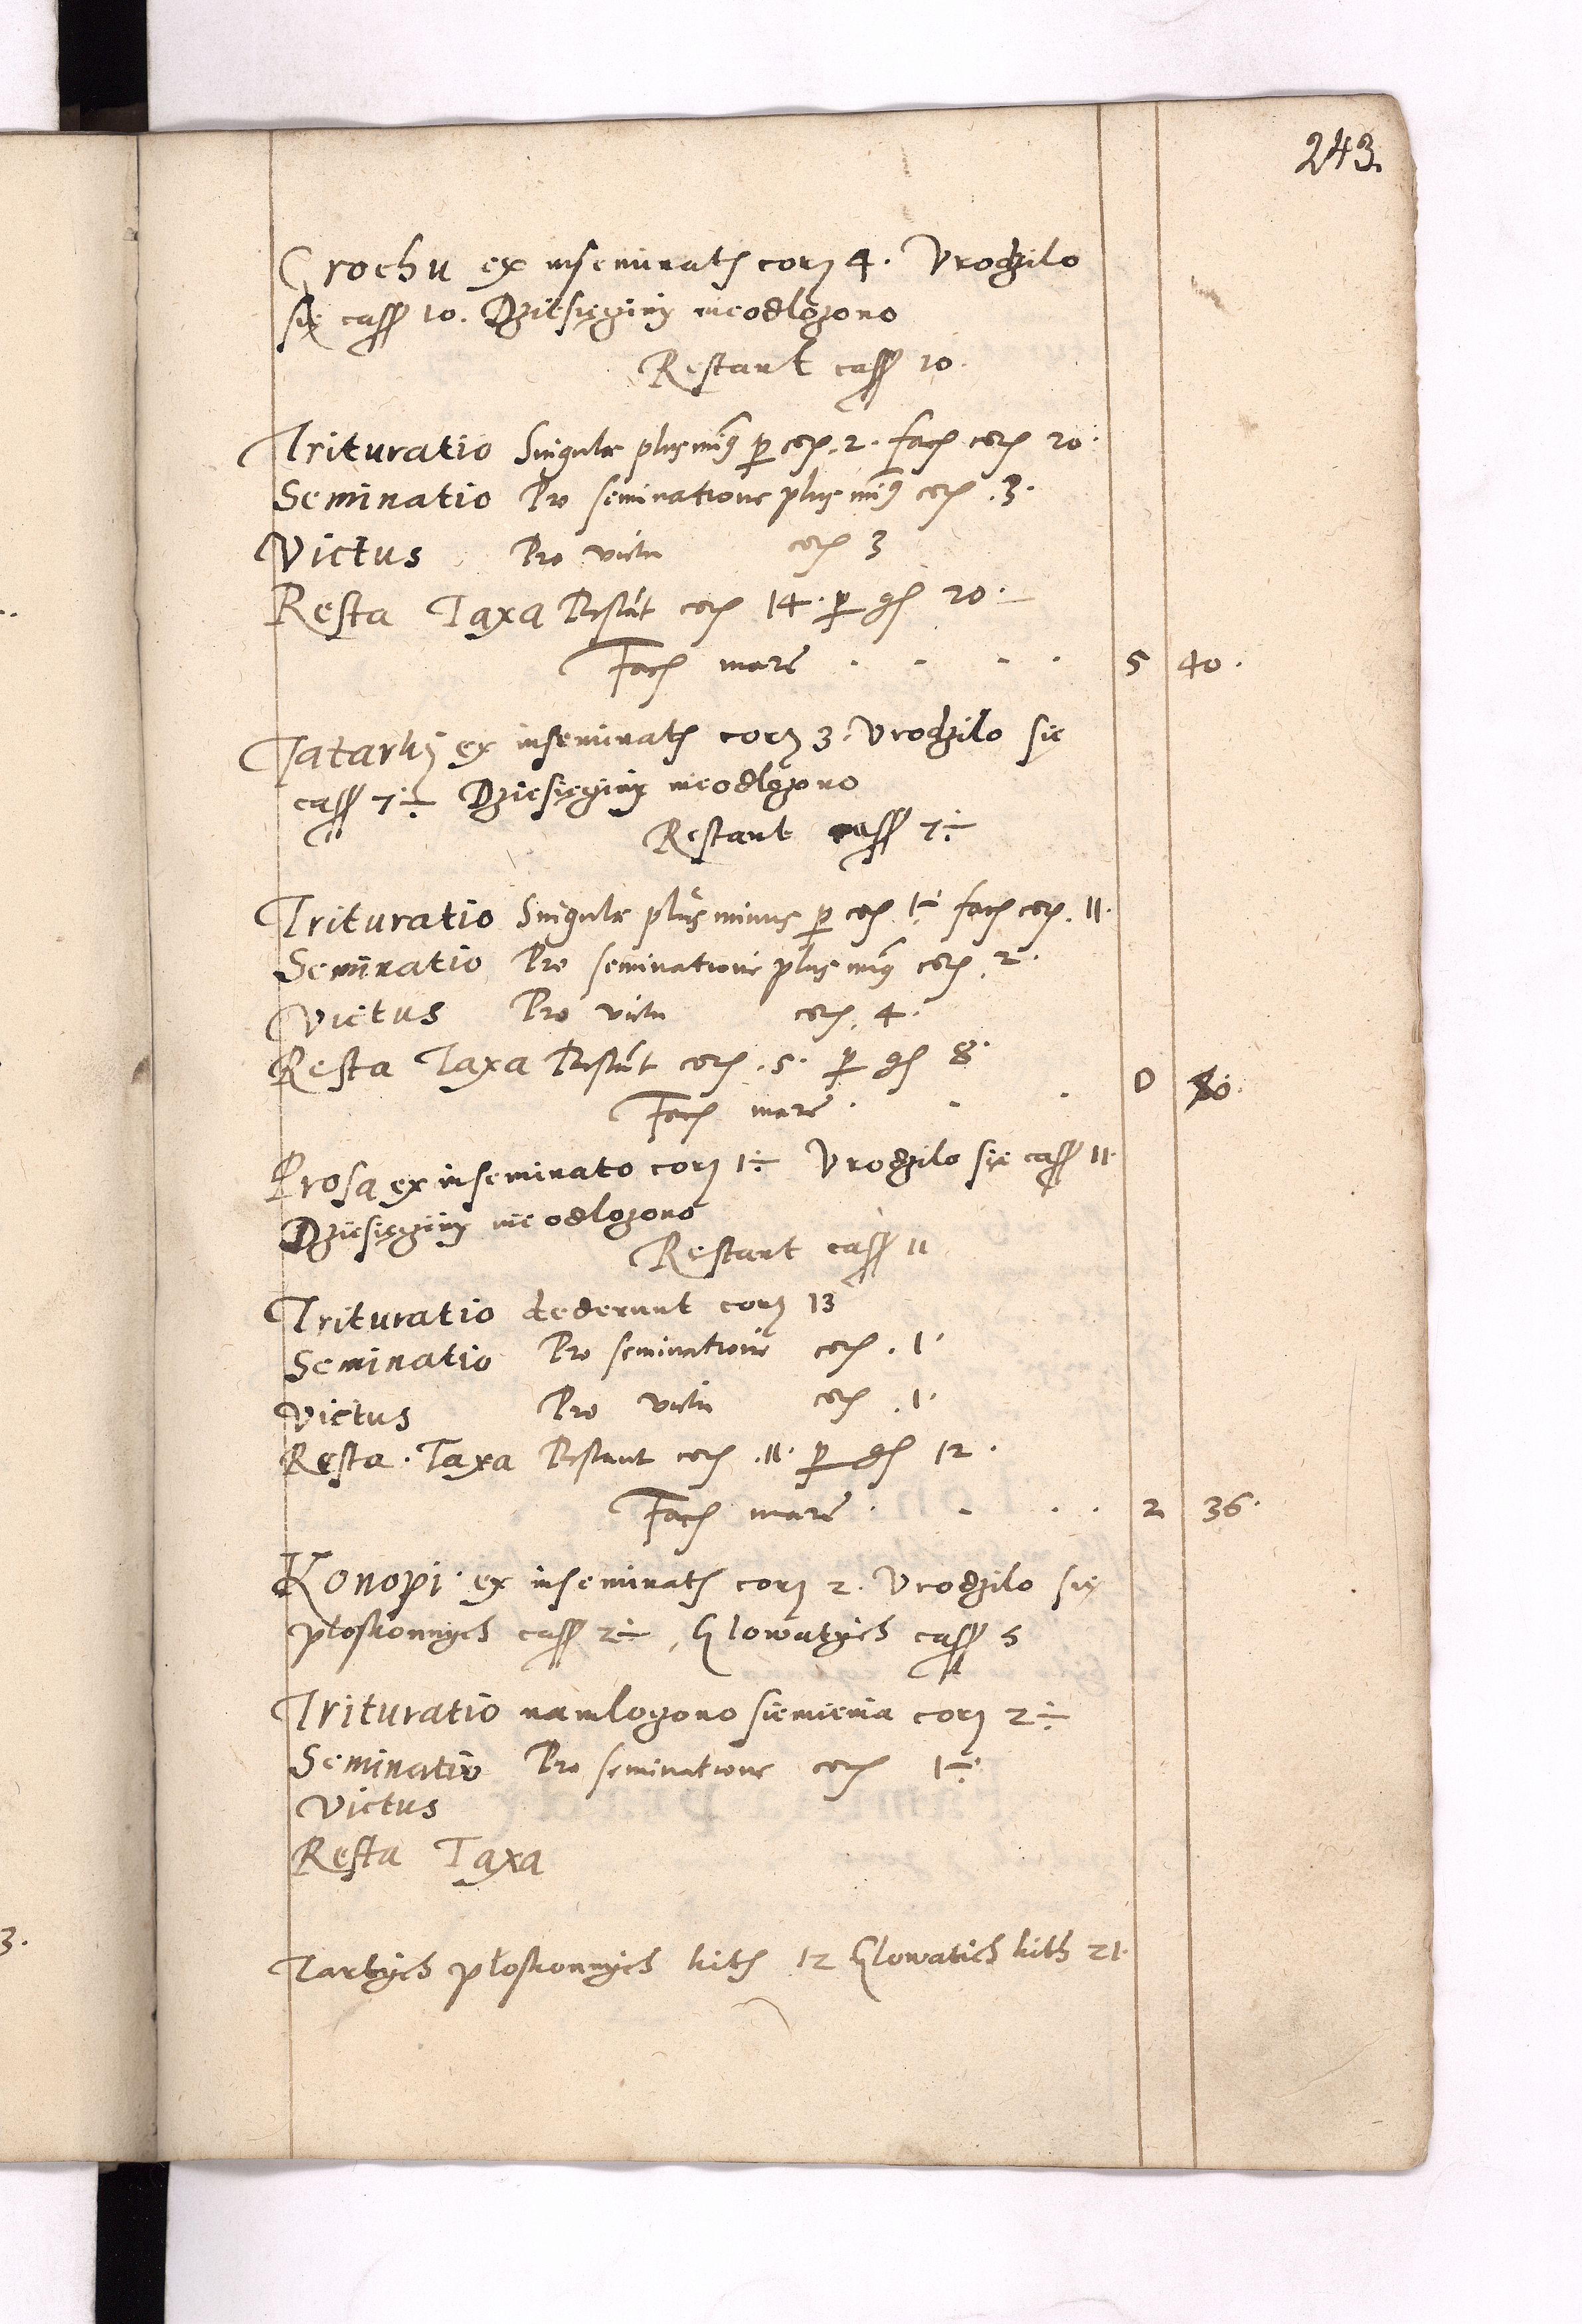 243.
Grochu ex inseminatis corz 4. Vrodzilo
się capp 10. Dziesięginy nieodlozono
Restant capp 10.
Trituratio Singule plus minus p cor. 2. facit cor 20.
Seminatio Pro seminatione plus minus cor 3.
Victus Pro victu cor 3
Resta Taxa Restant cor 14. p gs 20.
Facit marc . . . . 5 40.
Tatarki ex inseminatis corz 3. Vrodzilo się
capp 7÷ Dziesięginy nieodlozono
Restant capp 7÷
Trituratio Singule plus minus p cor 1÷ facit cor. 11.
Seminatio Pro seminatione plus minus cor 2.
Victus Pro victu cor. 4.
Resta Taxa Restant cor. 5. p gs 8.
Facit marc . . . 0 40.
Prosa ex inseminato corz 1÷ Vrodzilo się capp 11.
Dziesięginy nie odlozono
Restant capp 11
Trituratio dederunt corz 13
Seminatio Pro seminatione cor. 1.
Victus Pro victu cor. 1.
Resta. Taxa Restant cor. 11. p gs 12.
Facit marc . . . . 2 36.
Konopi. ex inseminatis corz 2. Vrodzilo się
płoskonnych capp 2÷, Głowatych capp 5
Trituratio namlozono siemienia corz 2÷
Seminatio Pro seminatione cor 1÷
Victus
Resta Taxa
Tartych płoskonnych kits 12 Głowatich kith 21.